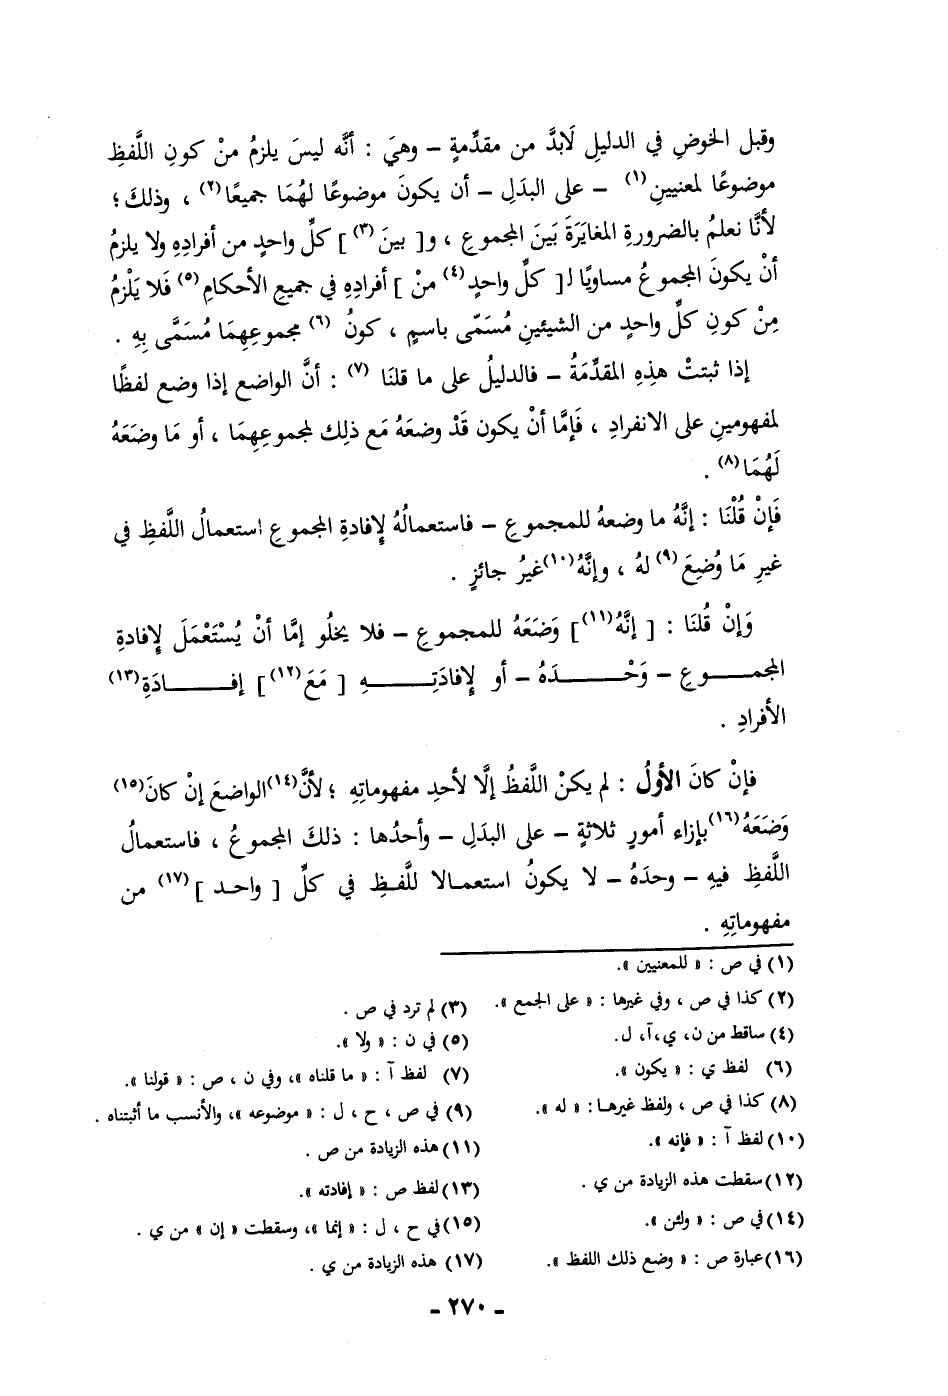 وقبل الخوضِ في الدليلِ لَابدَّ من مقدِّمةٍ – وهيَ : أنَّه ليسَ يلزمُ منْ كونِ اللَّفظِ
موضوعًا لمعنيينِ(١) – على البدَلِ – أن يكونَ موضوعًا لهُمَا جميعًا(٢) ، وذلكَ ؛
لأنَّا نعلمُ بالضرورةِ المغايَرَةَ بَينَ المجموعِ ، و[ بينَ (٣) ] كلِّ واحدٍ من أفرادِهِ ولا يلزمُ
أنْ يكونَ المجموعُ مساويًا لـ[ كلِّ واحدٍ(٤) منْ ] أفرادِهِ في جميعِ الأحكامِ(٥) فَلا يَلْزمُ
مِنْ كونِ كلِّ واحدٍ من الشيئينِ مُسَمًّى باسمٍ ، كونُ (٦) مجموعِهِمَا مُسَمًّى بِهِ .
إذا ثبتتْ هذِهِ المقدِّمَةُ – فالدليلُ على ما قلنَا (٧) : أنَّ الواضع إذا وضع لفظًا
لمفهومينِ على الانفرادِ ، فَإمَّا أنْ يكون قَدْ وضعَهُ مَع ذلِك لمجموعِهِمَا ، أو مَا وضَعَهُ
لَهُمَا(٨) .
فَإنْ قُلْنَا : إنَّهُ ما وضعهُ للمجموعِ – فاستعمالُهُ لِإفادةِ المجموعِ استعمالُ اللَّفظِ في
غيرِ مَا وُضِعَ(٩) لهُ ، وإنَّهُ(١٠)غيرُ جائزٍ .
وَإنْ قُلنَا : [ إنَّهُ(١١)] وَضَعَهُ للمجموعِ – فلا يخلُو إمَّا أنْ يُسْتَعْمَلَ لِإفادةِ
المجمــوعِ – وَحْــدَهُ – أو لِإفادَتِــهِ [ مَعَ(١٢)] إفــادَةِ(١٣)
الأفرادِ .
فإنْ كانَ الأولُ : لم يكنْ اللَّفظُ إلَّا لأحدِ مفهوماتِهِ ؛ لأنَّ(١٤)الواضعَ إنْ كانَ(١٥)
وَضَعَهُ(١٦)بإزاء أمورٍ ثلاثةٍ – على البدَلِ – وأحدُها : ذلكَ المجموعُ ، فاستعمالُ
اللَّفظِ فيهِ – وحدَهُ – لا يكونُ استعمالا للَّفظِ في كلِّ [ واحد ](١٧) من
مفهوماتِهِ .
(١) في ص : « للمعنيين ».
(٢) كذا في ص ، وفي غيرها : « على الجمع ».
(٣) لم ترد في ص .
(٤) ساقط من ن، ي،آ، ل.
(٥) في ن : « ولا ».
(٦) لفظ ي : « يكون ».
(٧) لفظ آ : « ما قلناه »، وفي ن ، ص : « قولنا ».
(٨) كذا في ص ، ولفظ غيرهـا: « له ».
(٩) في ص ، ح ، ل : « موضوعه »، والأنسب ما أثبتناه .
(١٠) لفظ آ : « فإنه ».
(١١) هذه الزيادة من ص .
(١٢) سقطت هذه الزيادة من ي .
(١٣) لفظ ص : « إفادته ».
(١٤) في ص : « ولئن ».
(١٥) في ح ، ل : « إنما »، وسقطت « إن » من ي .
(١٦) عبارة ص : « وضع ذلك اللفظ ».
(١٧) هذه الزيادة من ي .
– ٢٧٠ –